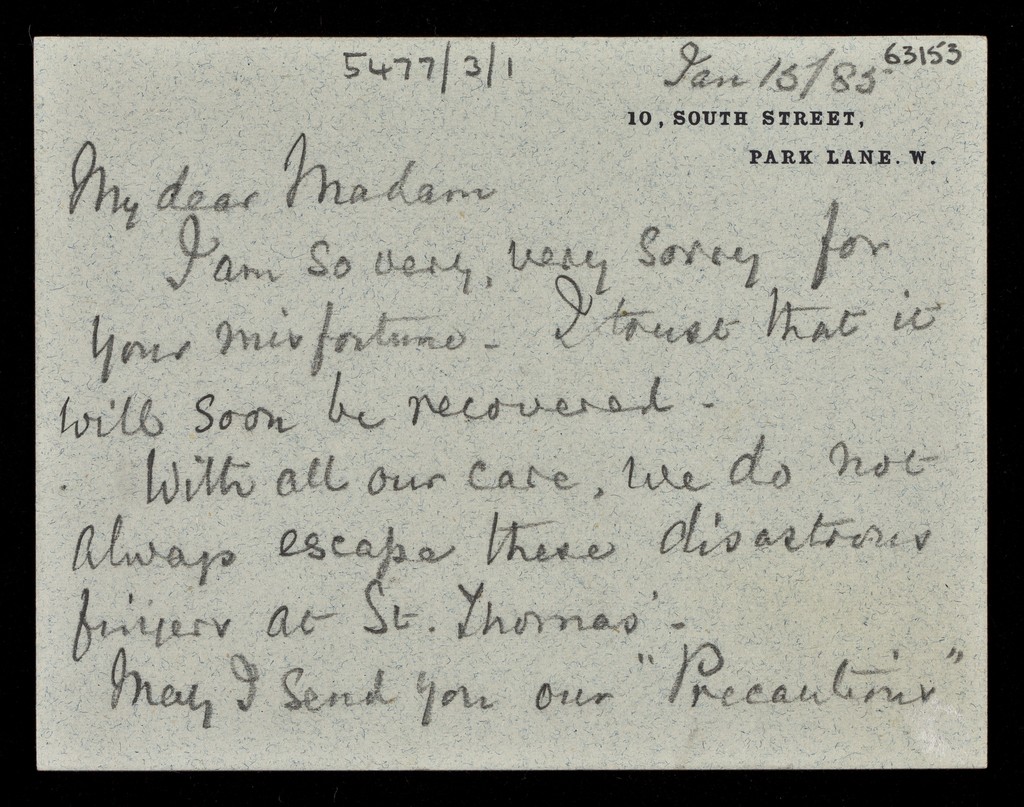 5477/3/1
63153
Jan 15/85
10, SOUTH STREET,
PARK LANE. W.
My dear Madam
I am so very, very sorry for
your misfortune - I trust that it
will soon be recovered -
With all our care, we do not
always escape these disastrous
fingers at St. Thomas' -
May I send you our "Precautions"